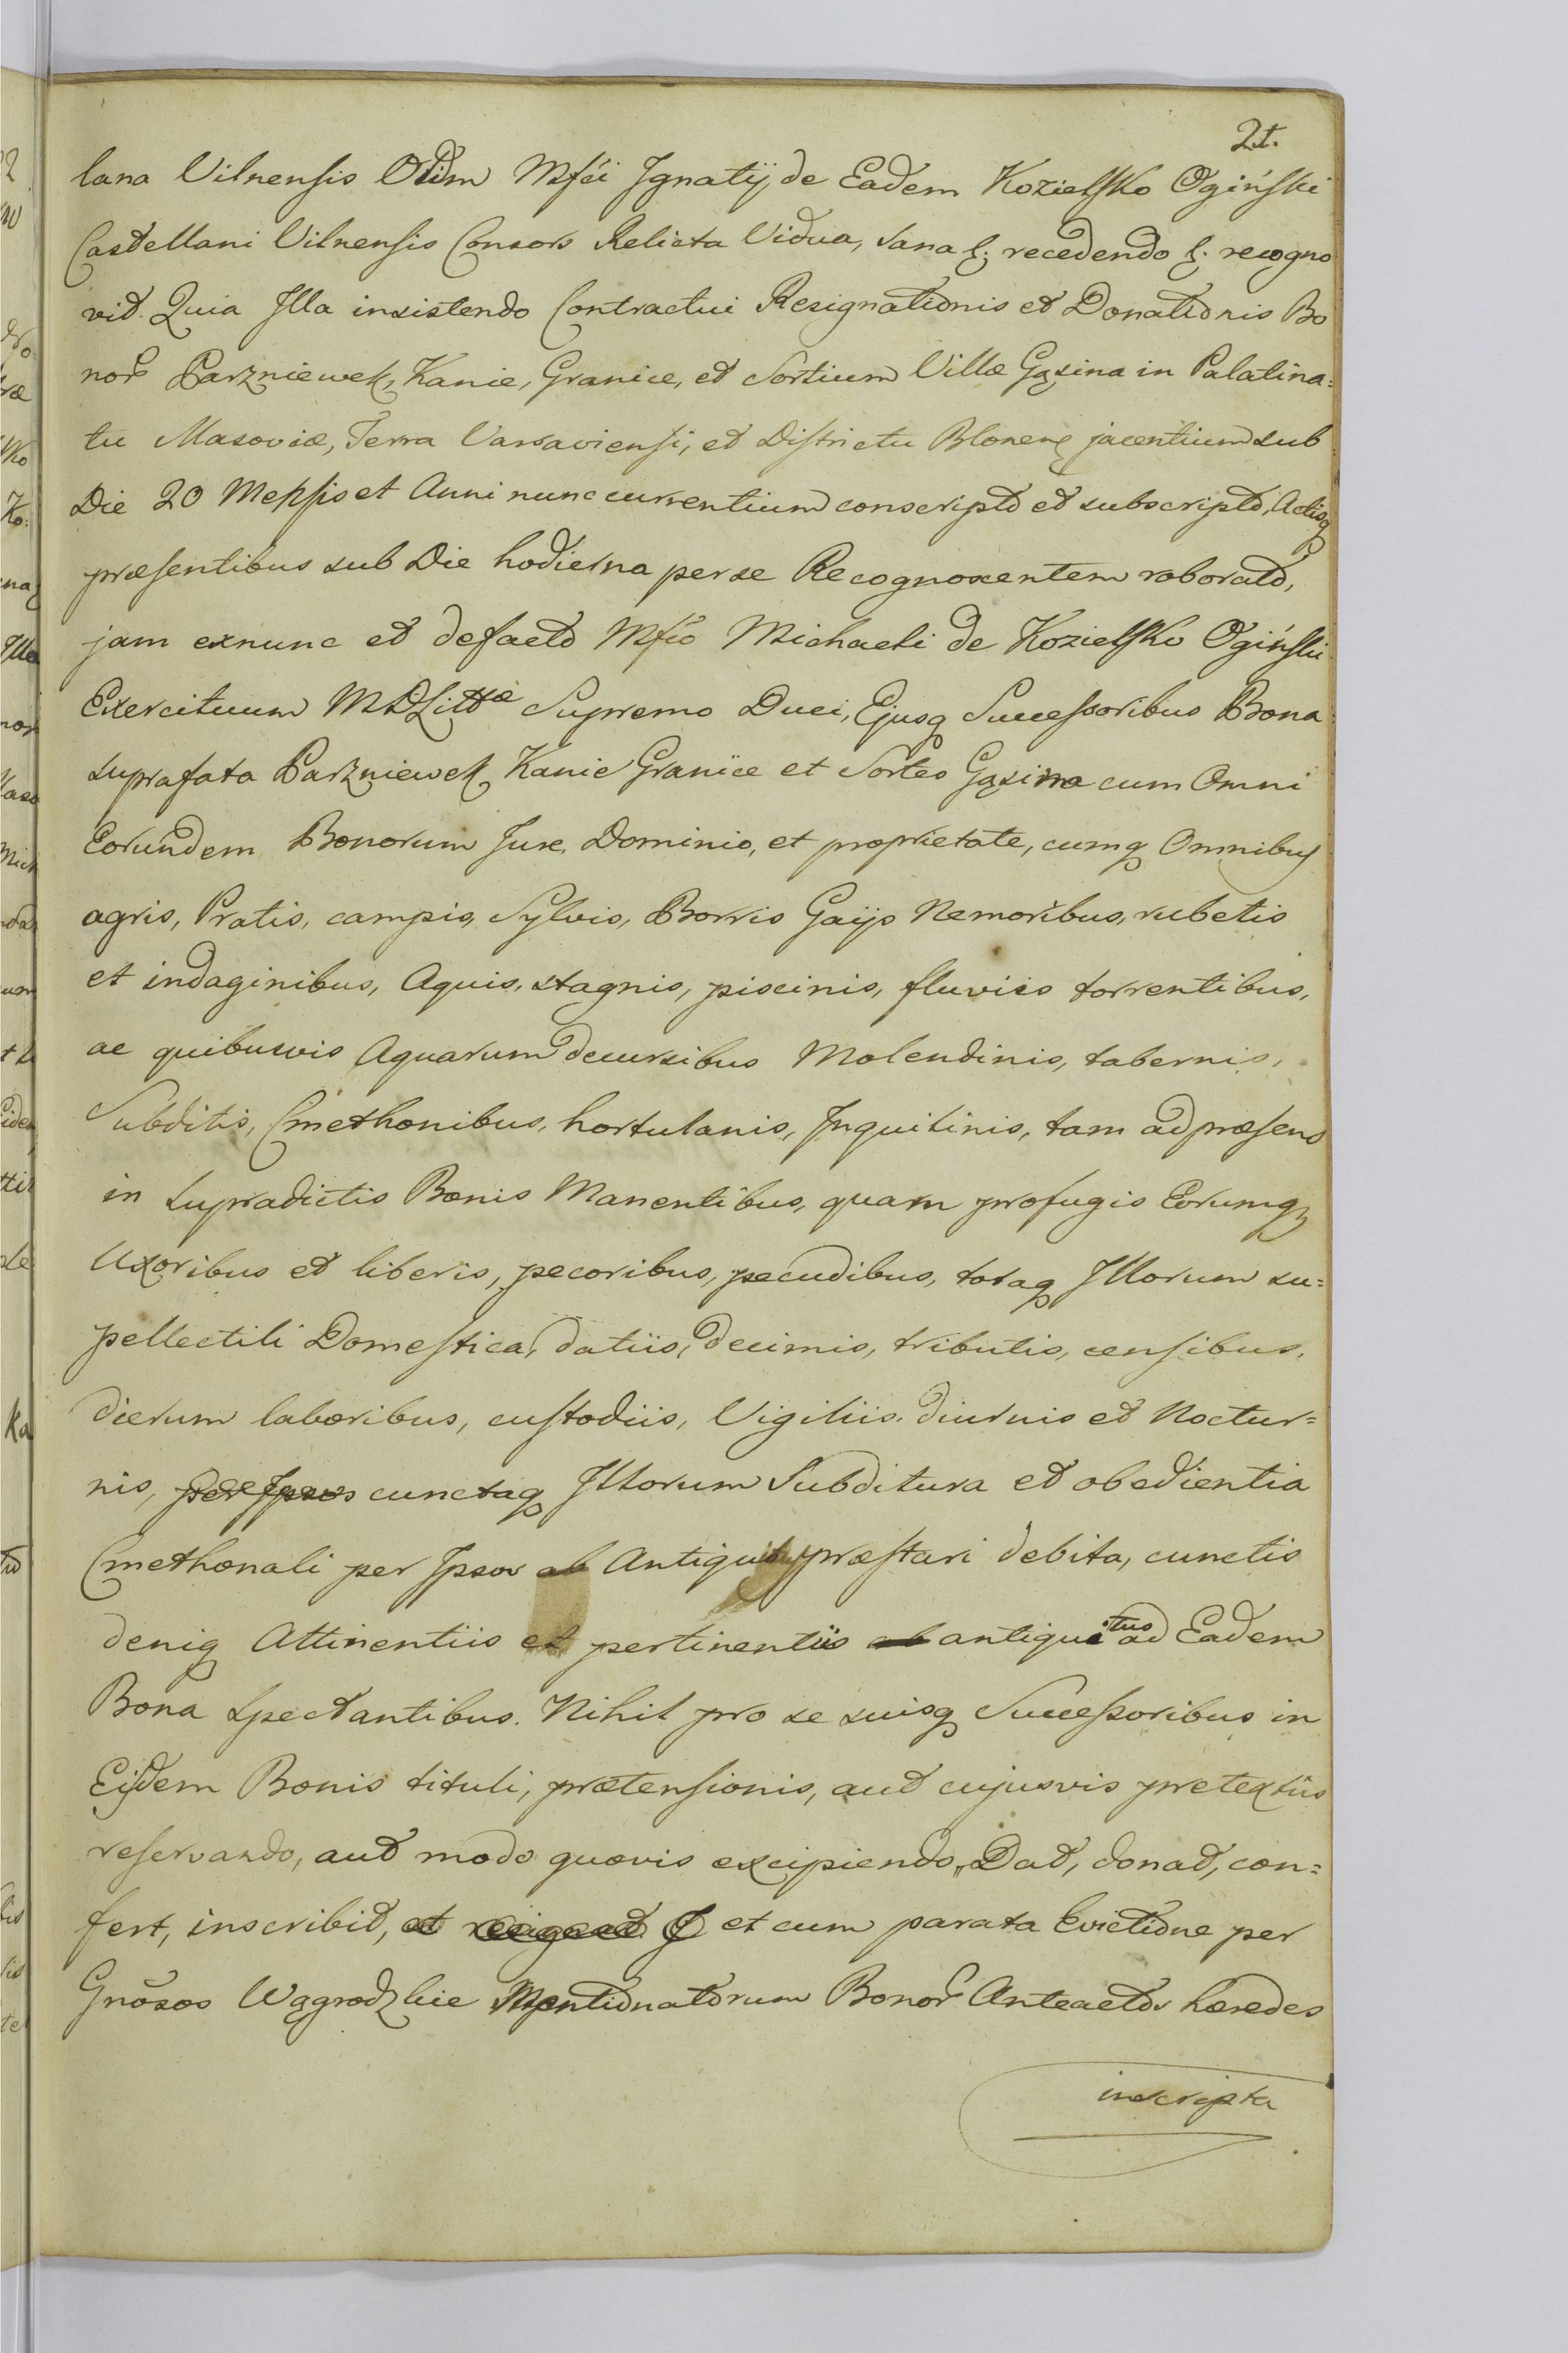 21.
lana Vilnensis Olim Mfci Ignatij de Eadem Kozielsko Ogiński
Castellani Vilnensis Consors Relicta Vidua, sana &. recedendo &. recogno
vit. Quia Illa insistendo Contractui Resignationis et Donationis Bo
nor Parzniewek, Kanie, Granice, et Sortium Villæ Gąsina in Palatina=
tu Masoviæ, Terra Varsaviensi, et Districtu Blonen jacentium sub
Die 20 Mensis et Anni nunc currentium conscripto et subscripto, Actisq
præsentibus sub Die hodierna per se Recognoscentem roborato,
jam exnunc et defacto Mfco Michaeli de Kozielsko Ogiński
Exercituum MDLittæ Supremo Duci, Ejusq Successoribus Bona
suprafata Parzniewek, Kanie Granice et Sortes Gąsina cum Omni
Eorundem Bonorum Jure, Dominio, et proprietate, cumq Omnibus
agris, Pratis, campis, Sylvis, Borris Gaijs Nemoribus, rubetis
et indaginibus, Aquis, stagnis, piscinis, fluviis torrentibus,
ac quibusvis Aquarum decursibus Molendinis, tabernis,
Subditis, Cmethonibus, hortulanis, Inquilinis, tam ad præsens
in supradictis Bonis Manentibus, quam profugis Eorumq
Uxoribus et liberis, pecoribus, pecudibus, totaq Illorum su=
pellectili Domestica, datiis, decimis, tributis, censibus,
dierum laboribus, custodiis, Vigiliis diurnis et Noctur=
nis, per Ipsos cunctaq Illorum Subditura et obedientia
Cmethonali per Ipsos ab Antiquo præstari debita, cunctis
deniq Attinentiis et pertinentiis ab antiquitus ad Eadem
Bona spectantibus. Nihil pro se suisq Successoribus in
Eisdem Bonis tituli, prætensionis, aut cujusvis pretextus
reservando, aut modo quovis excipiendo, Dat, donat, con=
fert, inscribit, et resignat et cum parata Evictione per
Gnosos Wągrodzkie Mentionatorum Bonor Anteactos hæredes
inscripta